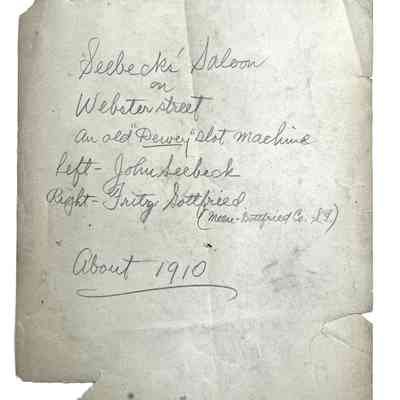 "Seebecks' Saloon
on
Webster street
an old "Dewey" slot machine
Left - John Seebeck
Right - Fritz Gottfried
(Moore-Gottfried Co. S.F.)
About 1910